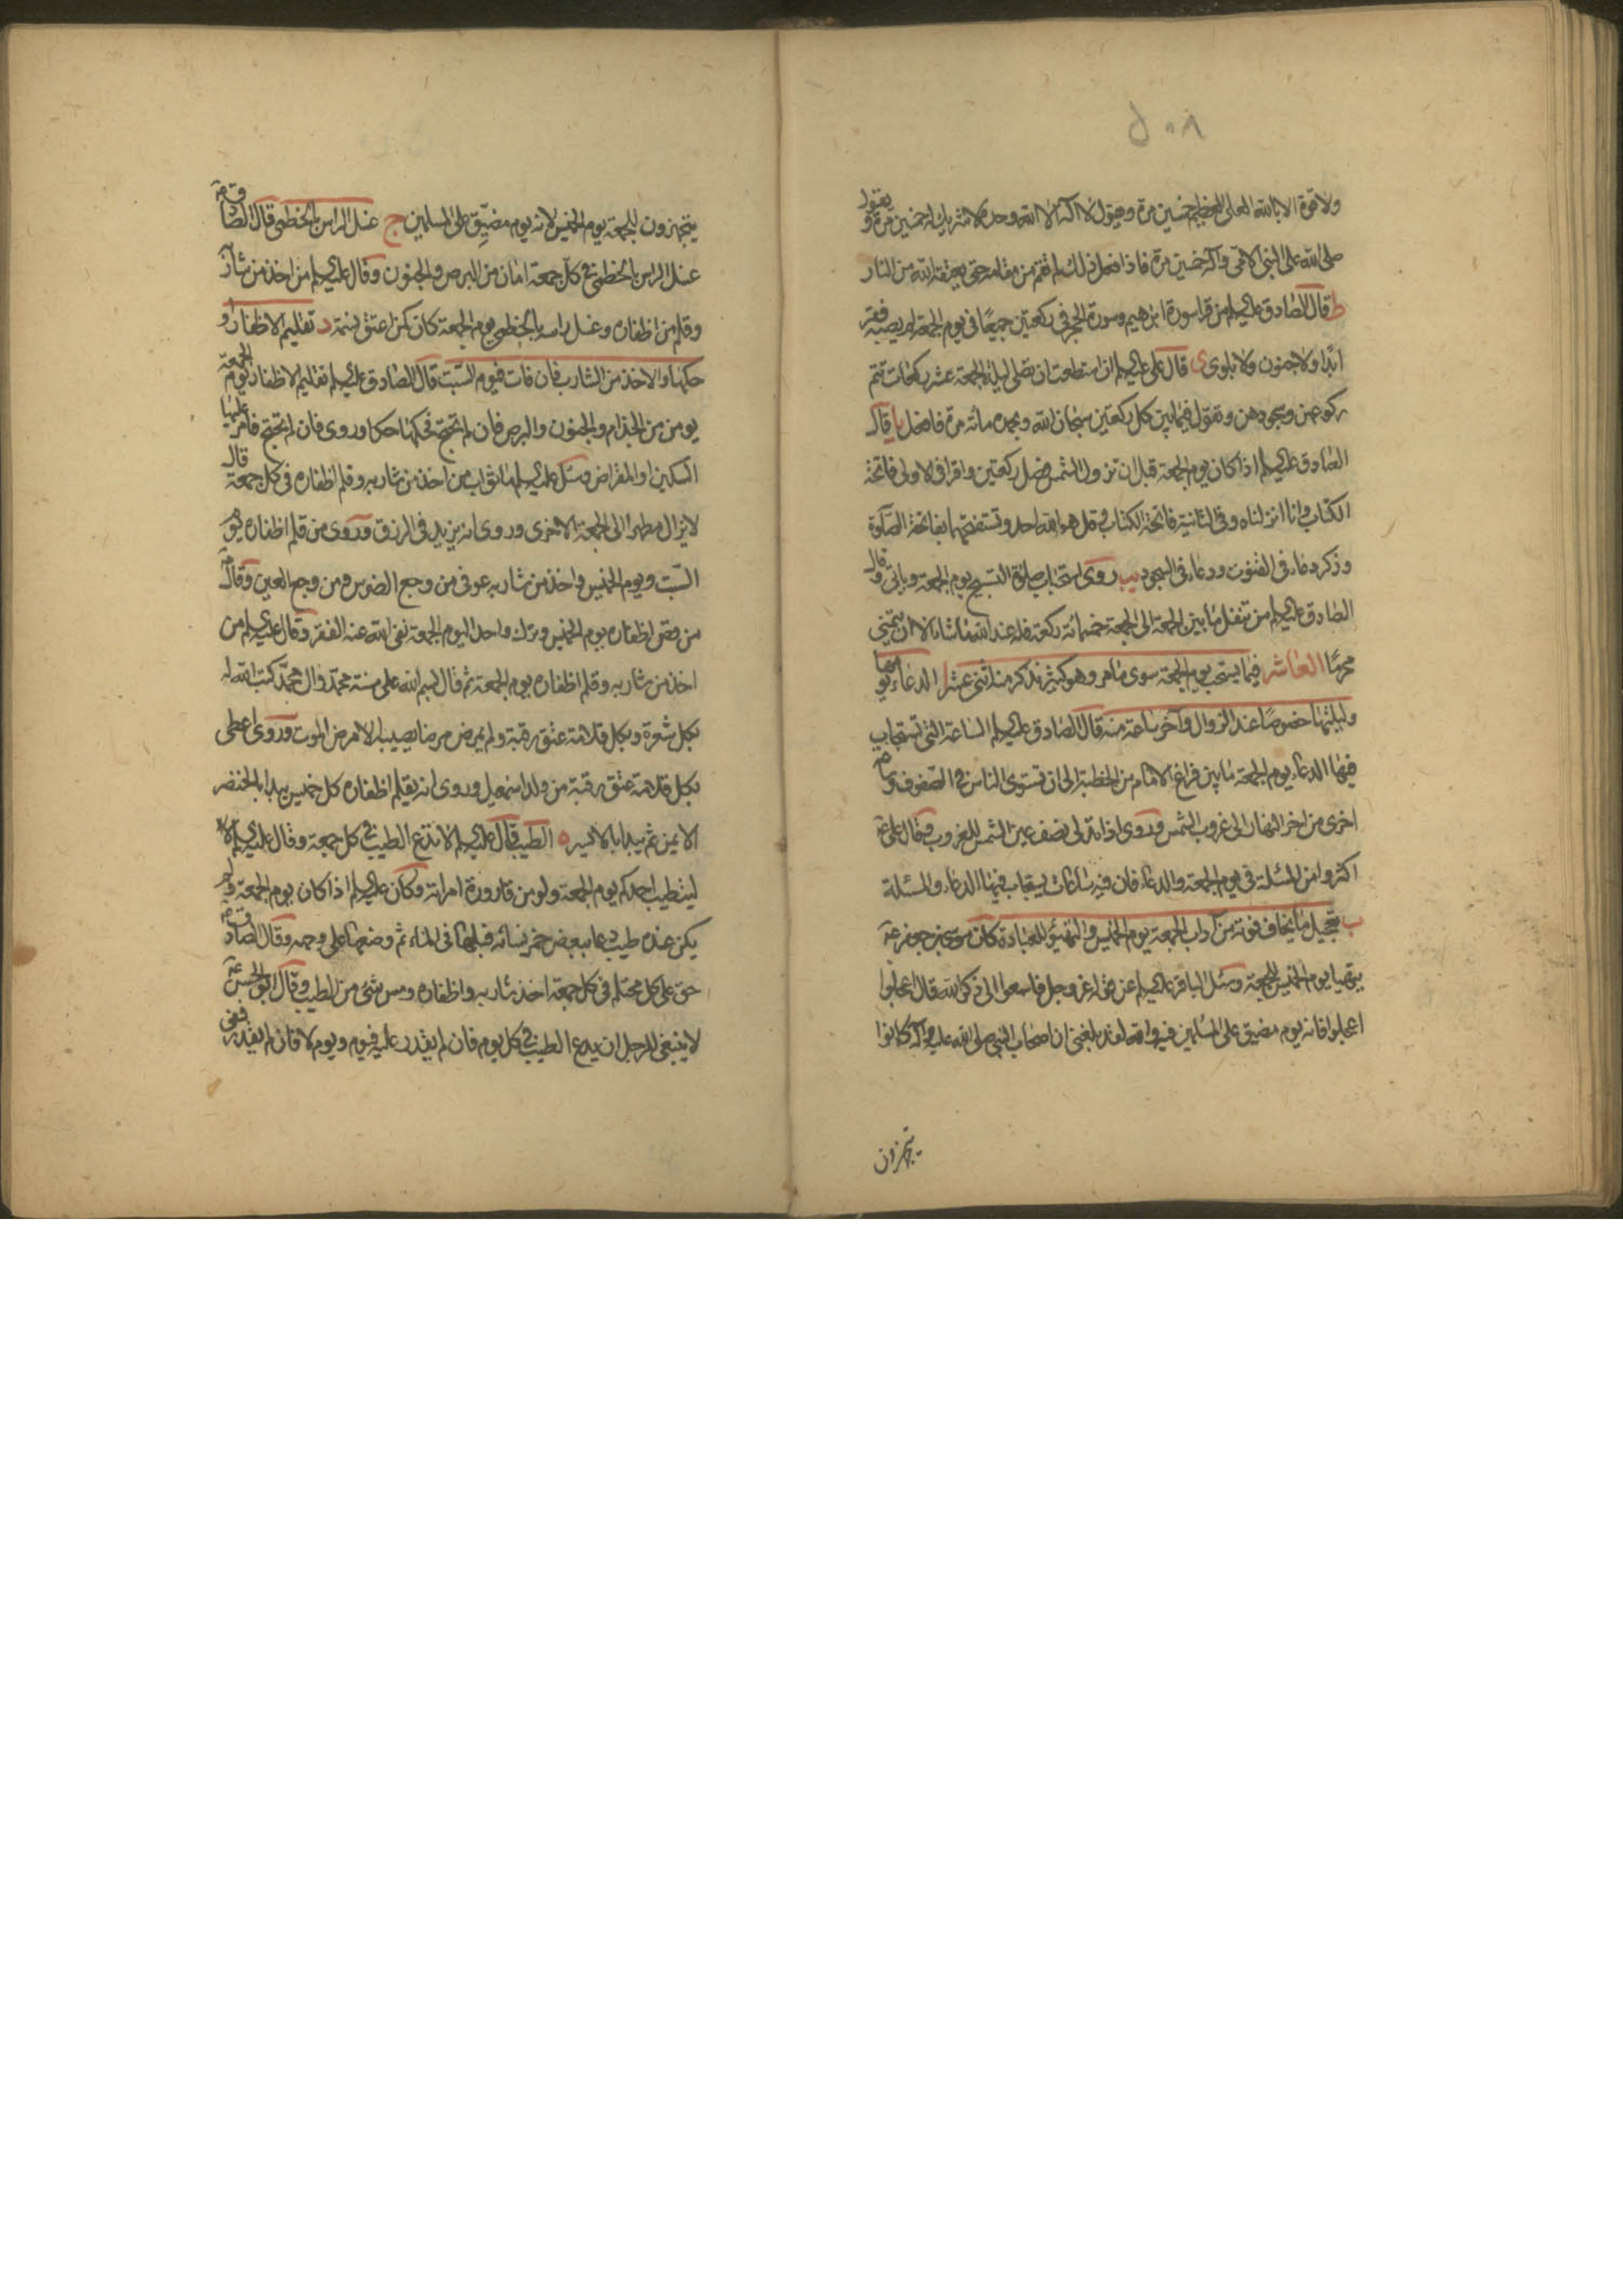 ٥٠٨
ولا قوة الا بالله العلى العظيم خمسين مرة ويقول لا اله الا الله وحده لا شريك له خمسين مرة ويقول
صلى الله على النبي الامى وآله خمسين مرة فاذا فعل ذلك لم يقم من مقامه حتى يعتقه الله من النار
ط قال الصادق عليه السلم من قرا سورة ابرهيم وسورة الحجر فى ركعتين جميعًا فى يوم الجمعة لم يصبه فقر
ابدًا ولا جنون ولا بلوى ى قال على عليه السلم ان استطعت ان تصلى ليلة الجمعة عشر ركعات تتم
ركوعهن وسجودهن وتقول فيما بين كل ركعتين سبحان الله وبحمده مائة مرة فافعل يا قال
الصادق عليه السلم اذا كان يوم الجمعة قبل ان تزول الشمس فصل ركعتين واقرا فى الاولى فاتحة
الكتاب وانا انزلناه وفى الثانية فاتحة الكتاب وقل هو الله احد وتستفتحها بفاتحة الصلوة
وذكر دعاء فى القنوت ودعاء فى السجود يب روى استحباب صلوة التسبيح يوم الجمعة وياتى وقال
الصادق عليه السلم من تنفل ما بين الجمعة الى الجمعة خمسمائة ركعة فله عند الله ما شاء الا ان يتمنى
محرمًا العاشر فيما يستحب يوم الجمعة سوى ما مر وهو كثير نذكر منه اثنى عشر ا الدعاء يومها
وليلتها خصوصًا عند الزوال وآخر ساعة منه قال الصادق عليه السلم الساعة التى تستجاب
فيها الدعاء يوم الجمعة ما بين فراغ الامام من الخطبة الى ان تستوى الناس فى الصفوف وساعة
اخرى من اخر النهار الى غروب الشمس وروى اذا تدلى نصف عين الشمس للغروب وقال على ع
اكثروا من المسئلة فى يوم الجمعة والدعاء فان فيه ساعات يستجاب فيها الدعاء والمسئلة
ب تعجيل ما يخاف فوته من آداب الجمعة يوم الخميس والتهيؤ للعبادة كان موسى بن جعفر ع
يتهيا يوم الخميس للجمعة وسئل الباقر عليه السلم عن قوله عز وجل فاسعوا الى ذكر الله قال اعملوا
اعجلوا فانه يوم مضيق على المسلمين فيه والله لقد بلغنى ان اصحاب النبى صلى الله عليه وآله كانوا
يتجهزون
يتجهزون للجمعة يوم الخميس لانه يوم مضيّق على المسلمين ج غسل الراس بالخطمى قال الصادق ع
غسل الراس بالخطمى فى كل جمعة امان من البرص والجنون وقال عليه السلم من اخذ من شاربه
وقلم من اظفاره وغسل راسه بالخطمى يوم الجمعة كان كمن اعتق نسمة د تقليم الاظفار او
حكها والاخذ من الشارب فان فات فيوم السبت قال الصادق عليه السلم تقليم الاظفار يوم الجمعة
يومن من الجذام والجنون والبرص فان لم تحتج فحكها حكا وروى فان لم تحتج فامر عليها
السكين او المقراض وسئل عليه السلم ما ثواب من اخذ من شاربه وقلم اظفاره فى كل جمعة قال
لا يزال مطهرا الى الجمعة الاخرى وروى انه يزيد فى الرزق وروى من قلم اظفاره يوم
السبت ويوم الخميس واخذ من شاربه عوفى من وجع الضرس ومن وجع العين وقال ع
من قص اظفاره يوم الخميس وترك واحدا ليوم الجمعة نفى الله عنه الفقر وقال عليه السلم من
اخذ من شاربه وقلم اظفاره يوم الجمعة ثم قال بسم الله على سنة محمد وال محمّد كتب الله له
بكل شعرة وبكل قلامة عتق رقبة ولم يمرض مرضا يصيبه الا مرض الموت وروى اعطى
بكل قلامة عتق رقبة من ولد اسمعيل وروى انه يقلم اظفاره كل خميس يبدا بالخنصر
الايمن ثم يبدا بالايسر ه الطيب قال عليه السلم لا تدع الطيب فى كل جمعة وقال عليه السلم
ليتطيب احدكم يوم الجمعة ولو من قارورة امراته وكان عليه السلم اذا كان يوم الجمعة ولم
يكن عنده طيب دعا ببعض خمر نسائه فبلها فى الماء ثم وضعها على وجهه وقال الصادق ع
حق على كل محتلم فى كل جمعة اخذ شاربه واظفاره ومس شىء من الطيب وقال ابو الحسن ع
لا ينبغى للرجل ان يدع الطيب فى كل يوم فان لم يقدر عليه فيوم ويوم لا فان لم يقدر ففى